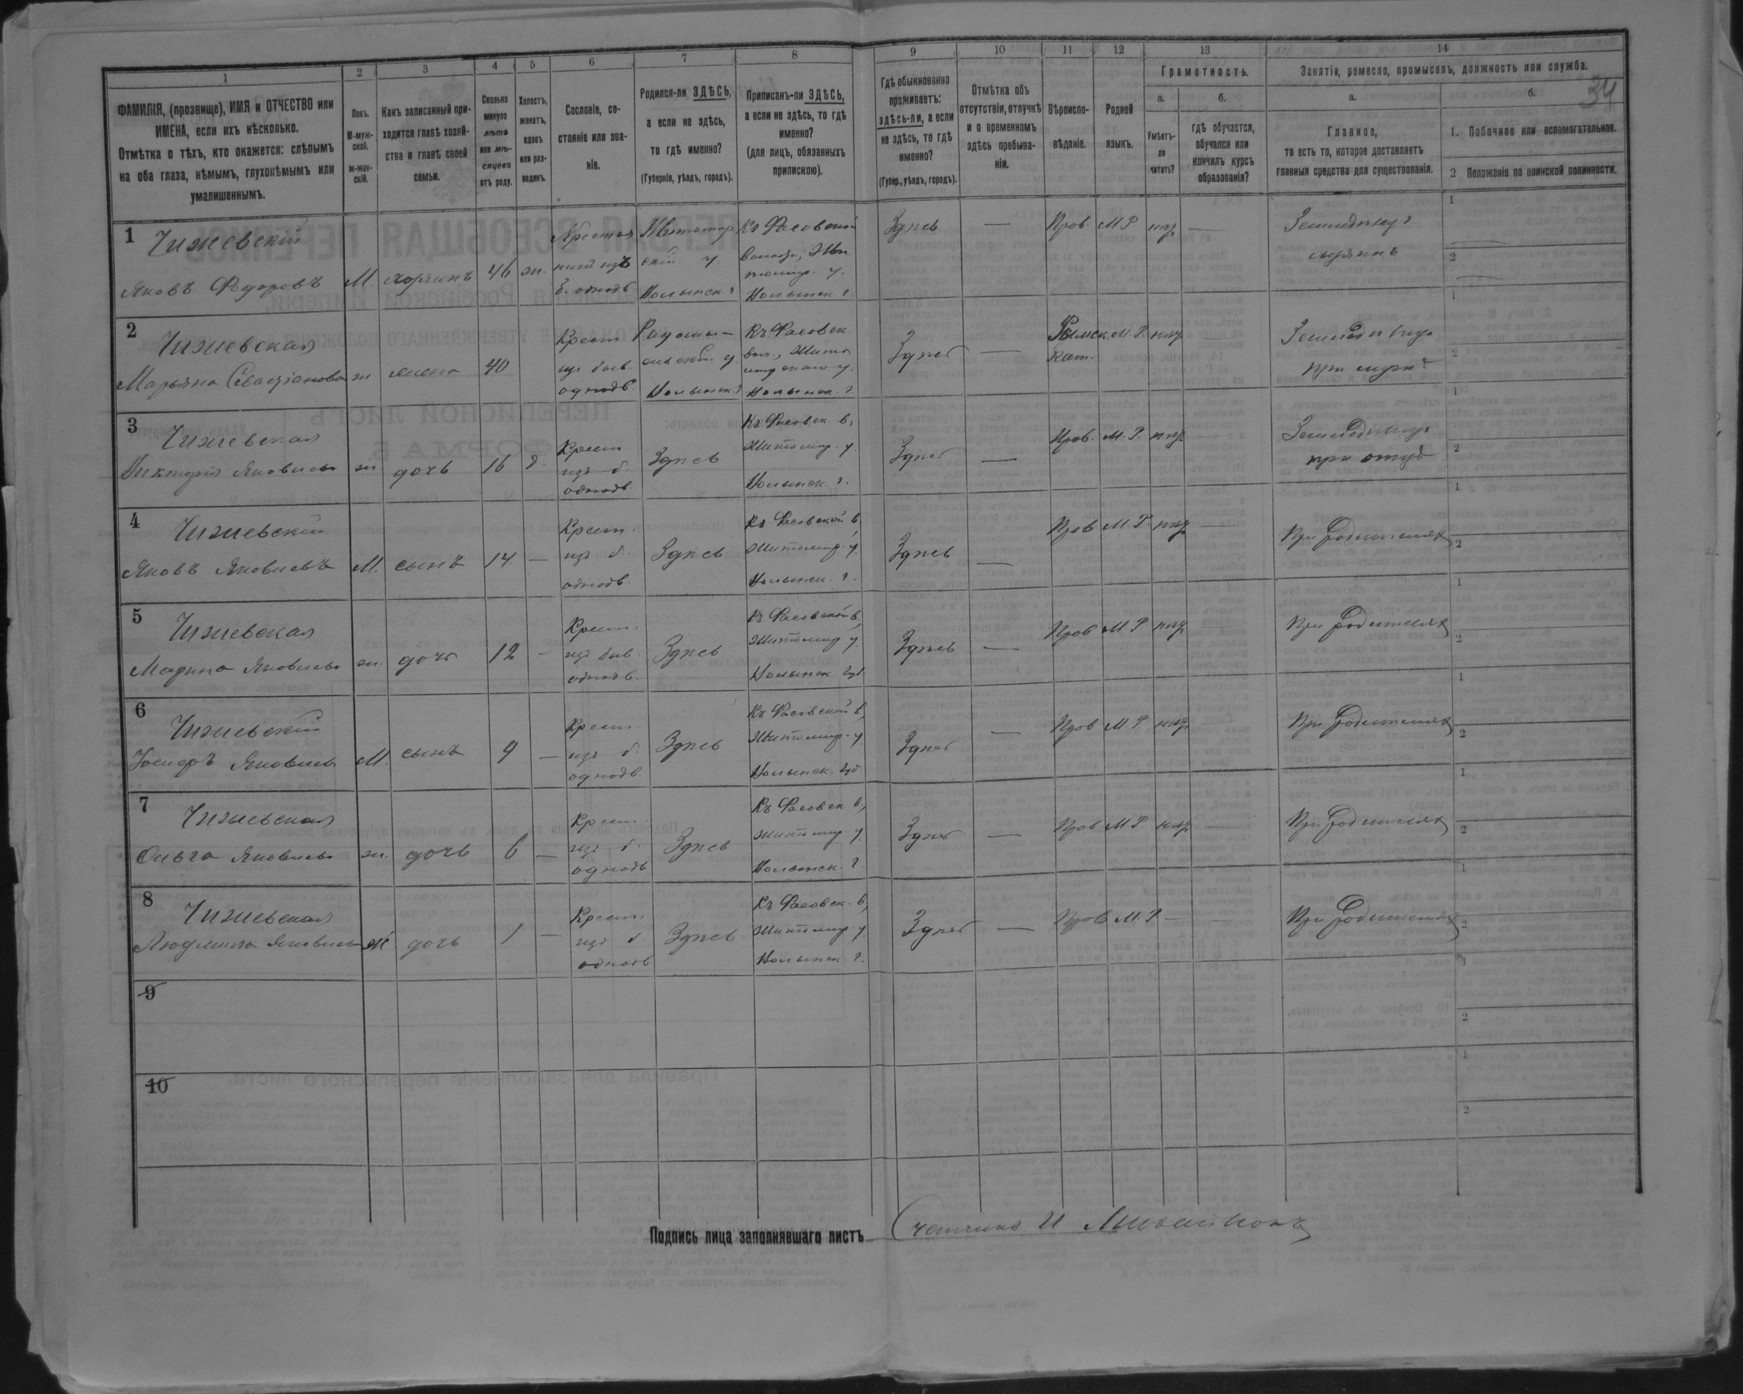 34
1
2
3
4
5
6
7
8
9
10
11
12
13
14
ФАМИЛІЯ, (прозвище), ИМЯ и ОТЧЕСТВО или
ИМЕНА, если ихъ нѣсколько.
Отмѣтка о тѣхъ, кто окажется: слѣпымъ
на оба глаза, нѣмымъ, глухонѣмымъ или
умалишеннымъ.
Полъ.
М-муж-
ской.
Ж-жен-
скій.
Какъ записанный при-
ходится главѣ хозяй-
ства и главѣ своей
семьи.
Сколько
минуло
лѣтъ
или мѣ-
сяцевъ
отъ роду.
Холостъ,
женатъ,
вдовъ
или раз-
веденъ.
Сословіе, со-
стояніе или зва-
ніе.
Родился-ли ЗДѢСЬ,
а если не здѣсь,
то гдѣ именно?
(Губернія, уѣздъ, городъ).
Приписанъ-ли ЗДѢСЬ,
а если не здѣсь, то гдѣ
именно?
(для лицъ, обязанныхъ
припискою).
Гдѣ обыкновенно
проживаетъ:
здѣсь-ли, а если
не здѣсь, то гдѣ
именно?
(Губер., уѣздъ, городъ).
Отмѣтка объ
отсутствіи, отлучкѣ
и о временномъ
здѣсь пребыва-
ніи.
Вѣроиспо-
вѣданіе.
Родной
языкъ.
Грамотность.
а.
Умѣетъ-
ли
читать?
б.
гдѣ обучается,
обучался или
кончилъ курсъ
образованія?
Занятіе, ремесло, промыселъ, должность или служба.
а.
Главное,
то есть то, которое доставляетъ
главныя средства для существованія.
б.
1. Побочное или вспомогательное.
2 Положеніе по воинской повинности.
1 Чижевскій
Яковъ Федоровъ М. хозяинъ 46 ж.
Волынск. г.
Здѣсь — Прав. М Р —
2 Чижевская
Марьяна Севастіанова ж жена 40
Крест. из быв. однодв.
Волынск. г.
Здѣсь — Римск. Кат. М. Р.
3 Чижевская
Викторія Яковлева ж дочь 16 д.
Крест. изъ б. однодв.
Здѣсь
Къ Фасовск. в. Житомир. у. Волынск. г.
Здѣсь — Прав. М. Р. —
при отцѣ
4 Чижевскій
Яковъ Яковлевъ М. сынъ 14 —
Крест. изъ б. однодв.
Здѣсь
Къ Фасовской в. Житомир. у. Волынск. г.
Здѣсь — Прав М. Р —
При родителяхъ
5 Чижевская
Марина Яковлева ж. дочь 12 —
Крест. изъ быв. однодв.
Здѣсь
Къ Фасовской в, Житомир. у. Волынск. губ
Здѣсь — Прав М Р —
При родителяхъ
6 Чижевскій
Іосифъ Яковлевъ М. сынъ 9 —
Крест. изъ б. однодв.
Здѣсь
Къ Фасовской в, Житомир. у Волынск. губ
Здѣсь — Прав М Р —
При родителяхъ
7 Чижевская
Ольга Яковлева ж. дочь 6 —
Крест. изъ б. однодв
Здѣсь
Къ Фасовск. в, Житомир. у. Волынск. г
Здѣсь — Прав М Р. —
При родителяхъ
8 Чижевская
Людмила Яковлева ж дочь 1 —
Крест. изъ б однодв
Здѣсь
Къ Фасовск. в, Житомир. у Волынск. г.
Здѣсь — Прав М. Р — —
При родителяхъ
9
10
Подпись лица заполнявшаго листъ
Счетчикъ И